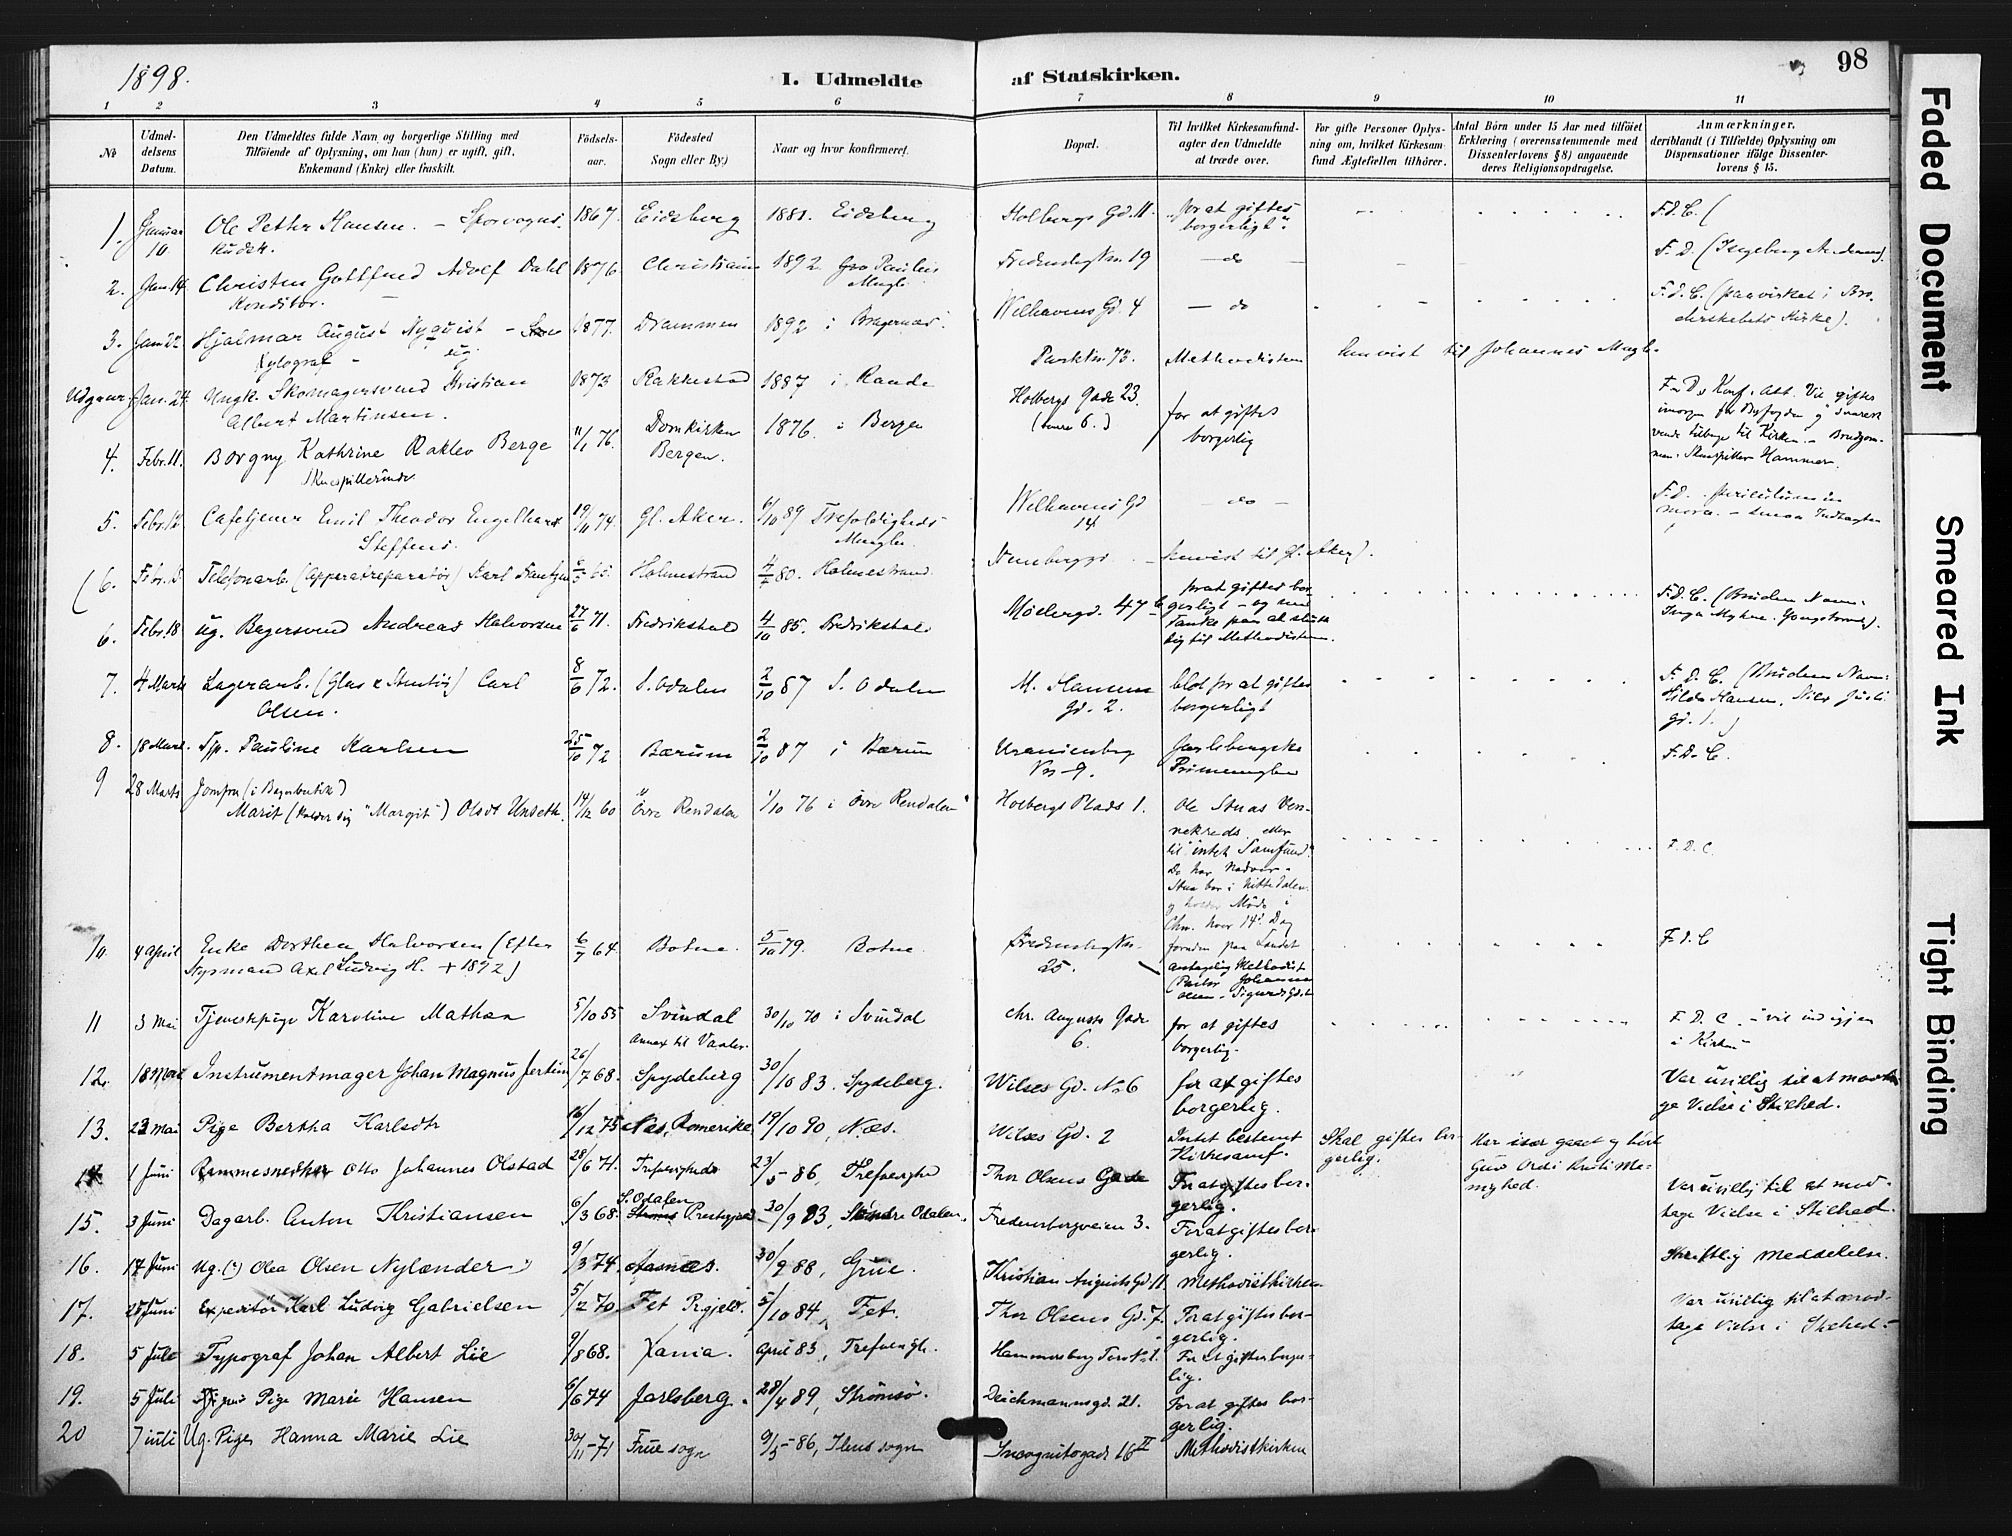 1898.
I. Udmeldte af Statskirken.
98
1 2 3 4 5 6 7 8 9 10 11
№
Udmel-
delsens
Datum.
Den Udmeldtes fulde Navn og borgerlige Stilling med
Tilföiende af Oplysning, om han (hun) er ugift, gift,
Enkemand (Enke) eller fraskilt.
Födsels-
aar.
Födested
Sogn eller By)
Naar og hvor konfirmeret.
Bopæl.
Til hvilket Kirkesamfund-
agter den Udmeldte
at træde over.
For gifte Personer Oplys-
ning om, hvilket Kirkesam-
fund Ægtefællen tilhörer.
Antal Börn under 15 Aar med tilföiet
Erklæring (overensstemmende med
Dissenterlovens § 8) angaaende
deres Religionsopdragelse.
Anmærkninger,
deriblandt (i Tilfælde) Oplysning om
Dispensationer ifölge Dissenter-
lovens § 15.
1. Januar 10. Ole Petter Hansen. – Sporvogns- kudsk. 1867. Eidsberg 1881. Eidsberg Holbergs Gd. 11. "for at giftes borgerligt". F.D.C. (
2. Jan. 14 Christen Gottfried Adolf Dahl Konditor. 1876. Christiania 1892. Paulus Mengh. 19 – do – F. D.
3. Jan 22 Hjalmar August Nyqvist – ug. Xylograf – 1877. Drammen 1892 i Bragernæs. Welhavens Gd. 4 – do F. D. C. (paavirket i Bro- derskabets Kirke).
Udgaar. Jan. 24. Ungk. Skomagersvend Kristian Albert Martinsen. 1873 Rakkestad 1887 i Raade Parkvn 73. Methodisten henvist til Johannes Mengh.
4. Febr. 11. Borgny Kathrine Raklev Berge Skuespillerinde 11/1 76. Domkirken Bergen. 1876. i Bergen Holbergs Gade 23. for at giftes borgerlig Skuespiller Hammer.
5. Febr. 12. Cafetjener Emil Theodor Engelhart Steffens. 19/11 74. Gl. Aker. 6/10 89 Trefoldigheds Mengh. Welhavens Gd 14 – do – F.D.
(6. Febr. Telefonarb. (Apparatreparatør) Karl Holmestrand 80. Holmestrand – henvist til Gl. Aker).
6. Febr. 18 ug. Bagersvend Andreas Halvorsen 27/6 71. Fredrikshald 4/10 85. Fredrikshald Møllergd. 47 b for at giftes bor- gerligt – og med Tanke paa at slutte sig til Methodisterne. F.D.C. (Brudens Navn:
7. 4 Marts Lagerarb. (Glas & Stentøj) Carl Olsen. 8/6 72. S. Odalen 2/10 87 S. Odalen M. Hansens Gd. 2. blot for at giftes borgerligt F. D. C. (Brudens Navn: Hilda Hansen, Niels Juels gd. 1.)
8. 18 Mars. Tjp. Pauline Karlsen 25/10 72 Bærum 2/10 87 i Bærum Uranienborg Vn 9. Jarlsbergske Frimenighed F.D.C.
9 28 Marts Jomfru (i Bagerbutik) Marit (kalder sig "Margit") Olsdt Unseth. 14/12 60 Övre Rendalen 1/10 76 i Övre Rendalen Holbergs Plads 1. Ole Stuas Ven- nekreds eller til "intet Samfund". Stua bor i Nittedalen og holder Møde i Chra. hver 14de Dag F. D. C.
10. 4 April Enke Dorthea Halvorsen (Efter Styrmand Axel Ludvig H. + 1892) 6/7 64. Botne. 5/10 79. Botne 25. Methodist (Pastor Johannes Olsen – F.D.C
11 3 Mai Tjenestepige Karoline Mathea 5/10 55 Svindal Annex til Vaaler. 30/10 70 i Svindal Chr. Augusts Gade 6. for at giftes borgerlig. F. D. C. – vil ind igjen i Kirken –
12. 18 Mai Instrumentmager Johan Magnus 26/7 68. Spydeberg 30/10 83. Spydeberg. Wilses Gd. No 6 for at giftes borgerlig. Var uvillig til at modta- ge Vielse i Stilhed.
13. 23 Mai Pige Bertha Karlsdtr 16/12 75 Næs, Romerike 19/10 90, Næs. Wilses Gd. 2 Intet bestemt Kirkesamf. Skal giftes bor- gerlig. Guds Ord i Kristi Me- nighed.
14 1 Juni Rammesnedker Otto Johannes Olstad 28/6 71. Trefoldigheds 23/5 – 86, Trefoldighd Thor Olsens Gade For at giftes bor- gerlig. Var uvillig til at mod- tage Vielse i Stilhed.
15. 3 Juni Dagarb. Anton Kristiansen 6/3 68. S. Odalen Prestegjeld 30/9 83, Søndre Odalen. Fredensborgveien 3. For at giftes bor- gerlig.
16. 14 Juni Ug. (?) Olea Olsen Nylænder 9/3 74. Aasnæs. 30/9 88, Grue. Kristian Augusts Gd. 11. Methodistkirken Skriftlig Meddelelse.
17. 25 Juni Expeditør Karl Ludvig Gabrielsen 5/2 70. Fet Prgjeld. 5/10 84, Fet. Thor Olsens Gd. 7. For at giftes bor- gerlig. Var uvillig til at mod- tage Vielse i Stilhed.
18. 5 Juli Typograf Johan Albert Lie 9/8 68. Xania. April 83, Trefoldigh. Hammersborg Terr. No 1. For at giftes borger- lig.
19. 5 Juli Pige Marie Hansen 6/6 74 Jarlsberg. 28/4 89, Strömsö. Deichmannsgd. 21. For at giftes bor- gerlig.
20 7 juli Ug. Pige, Hanna Marie Lie 30/11 – 71 Frue sogn 9/5 – 86, Ilens sogn Incognitogade 16 II Methodistkirken
Faded Document
Smeared Ink
Tight Binding